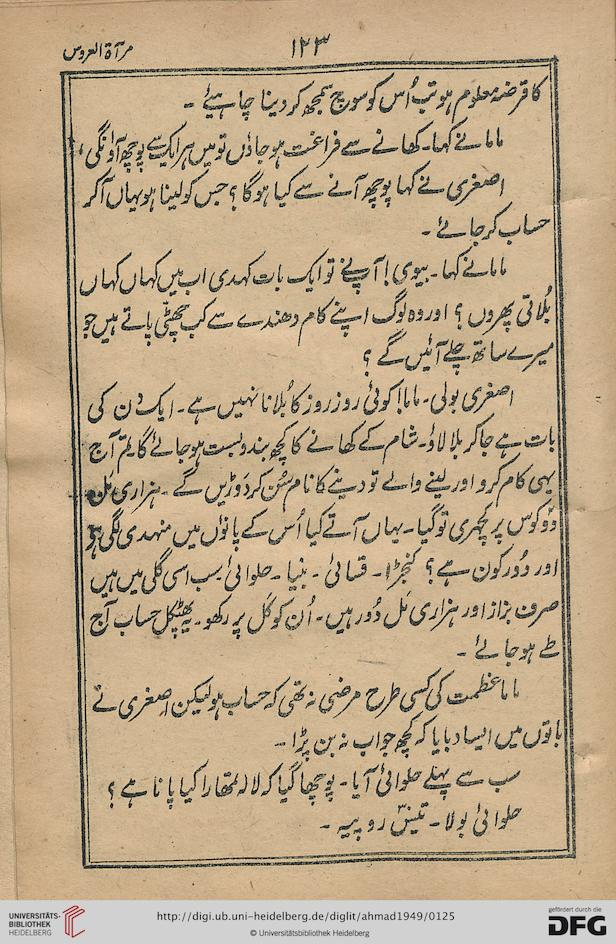 مرآۃ العروس
۱۲۳
کا قرضہ معلوم ہو تب اُس کو سوچ سمجھ کر دینا چاہیئے ۔
ماما نے کہا ۔ کھانے سے فراغت ہو جاؤں تو میں ہر ایک سے پوچھ آؤنگی ،،
اصغری نے کہا پوچھ آنے سے کیا ہوگا ؟ جس کو لینا ہو یہاں آکر
حساب کر جائے ۔
ماما نے کہا ۔ بیوی ! آپنے تو ایک بات کہدی اب میں کہاں کہاں
بُلاتی پھروں ؟ اور وہ لوگ اپنے کام دھندے سے کب چھٹّی پاتے ہیں جو
میرے ساتھ چلے آئیں گے ؟
اصغری بولی ۔ ماما ! کوئی روز روز کا بُلانا نہیں ہے ۔ ایک دن کی
بات ہے جا کر بلا لاؤ ۔ شام کے کھانے کا کچھ بندوبست ہو جائے گا تم آج
یہی کام کرو اور لینے والے تو دینے کا نام سُن کر دوڑیں گے ۔ ہزاری مل
دو کوس پر کچہری تو گیا ۔ یہاں آتے کیا اُس کے پانوٗں میں منہدی لگی ہے
اور دُور کون ہے ؟ کنجڑا ۔ قسائی ۔ بنیا ۔ حلوائی سب اسی گلی میں ہیں
صرف بزاز اور ہزاری مَل دُور ہیں ۔ اُن کو کَل پر رکھو ۔ یہ پٹکل حساب آج
طے ہو جائے ۔
ماما عظمت کی کسی طرح مرضی نہ تھی کہ حساب ہو لیکن اصغری نے
باتوں میں ایسا دبایا کہ کچھ جواب نہ بن پڑا ۔
سب سے پہلے حلوائی آیا ۔ پوچھا گیا کہ لالہ تمھارا کیا پانا ہے ؟
حلوائی بولا ۔ تیس روپیہ ۔
UNIVERSITÄTS-
BIBLIOTHEK
HEIDELBERG
http://digi.ub.uni-heidelberg.de/diglit/ahmad1949/0125
© Universitätsbibliothek Heidelberg
gefördert durch die
DFG